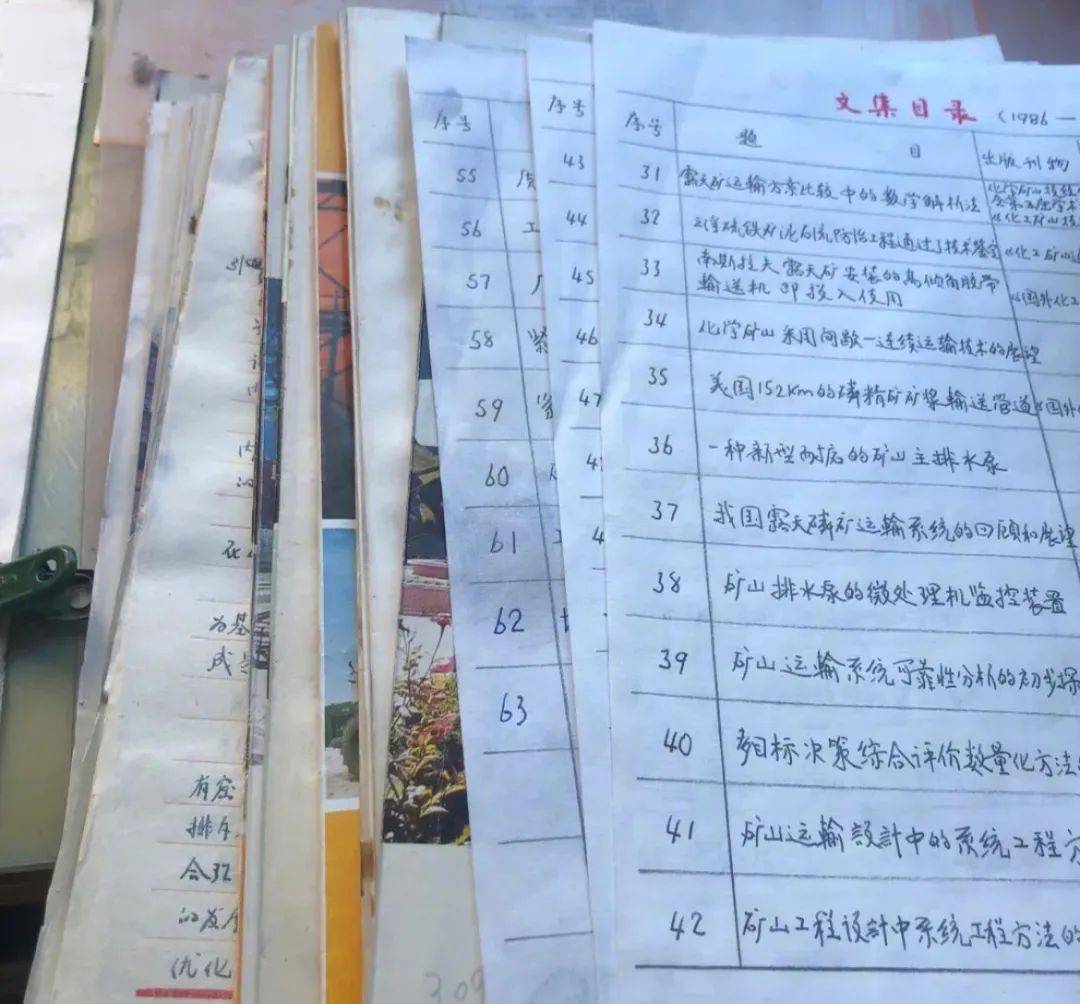 文集目录 (1986—
序号 题 目 出版刊物
31 露天矿运输方案比较中的数学解析法
《化工矿山技
32 云浮硫铁矿泥石流防治工程通过了技术鉴定 《化工矿山
33 南斯拉夫露天矿安装的高倾角胶带
输送机即投入使用 《国外化工
34 化学矿山采用间断—连续运输技术的展望
35 美国152Km的磷精矿矿浆输送管道 《国外
36 一种新型耐腐的矿山主排水泵
37 我国露天磷矿运输系统的回顾和展望
38 矿山排水泵的微处理机监控装置
39 矿山运输系统可靠性分析的初步探
40 多目标决策综合评价数量化方法
41 矿山运输設計中的系统工程方
42 矿山工程设計中系统工程方法的
序号
43
44
45
46
47
4
4
序号
55
56 工
57
58 紧
59
60
61
62
63
为基
成
有
排
合理
的发
优化
300